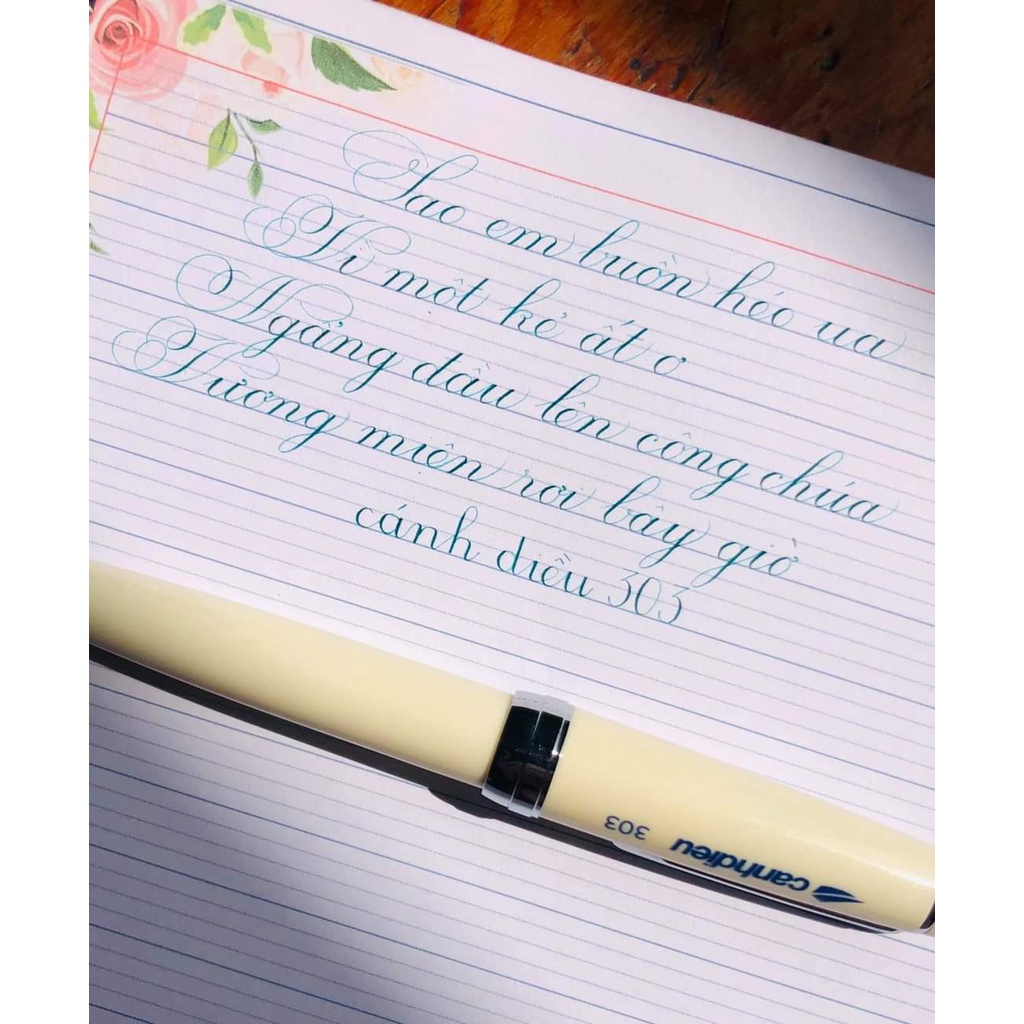 Sao em buồn héo úa
Vì một kẻ ất ơ
Ngẩng đầu lên công chúa
Vương miện rơi bây giờ
cánh diều 303
303
canhdieu